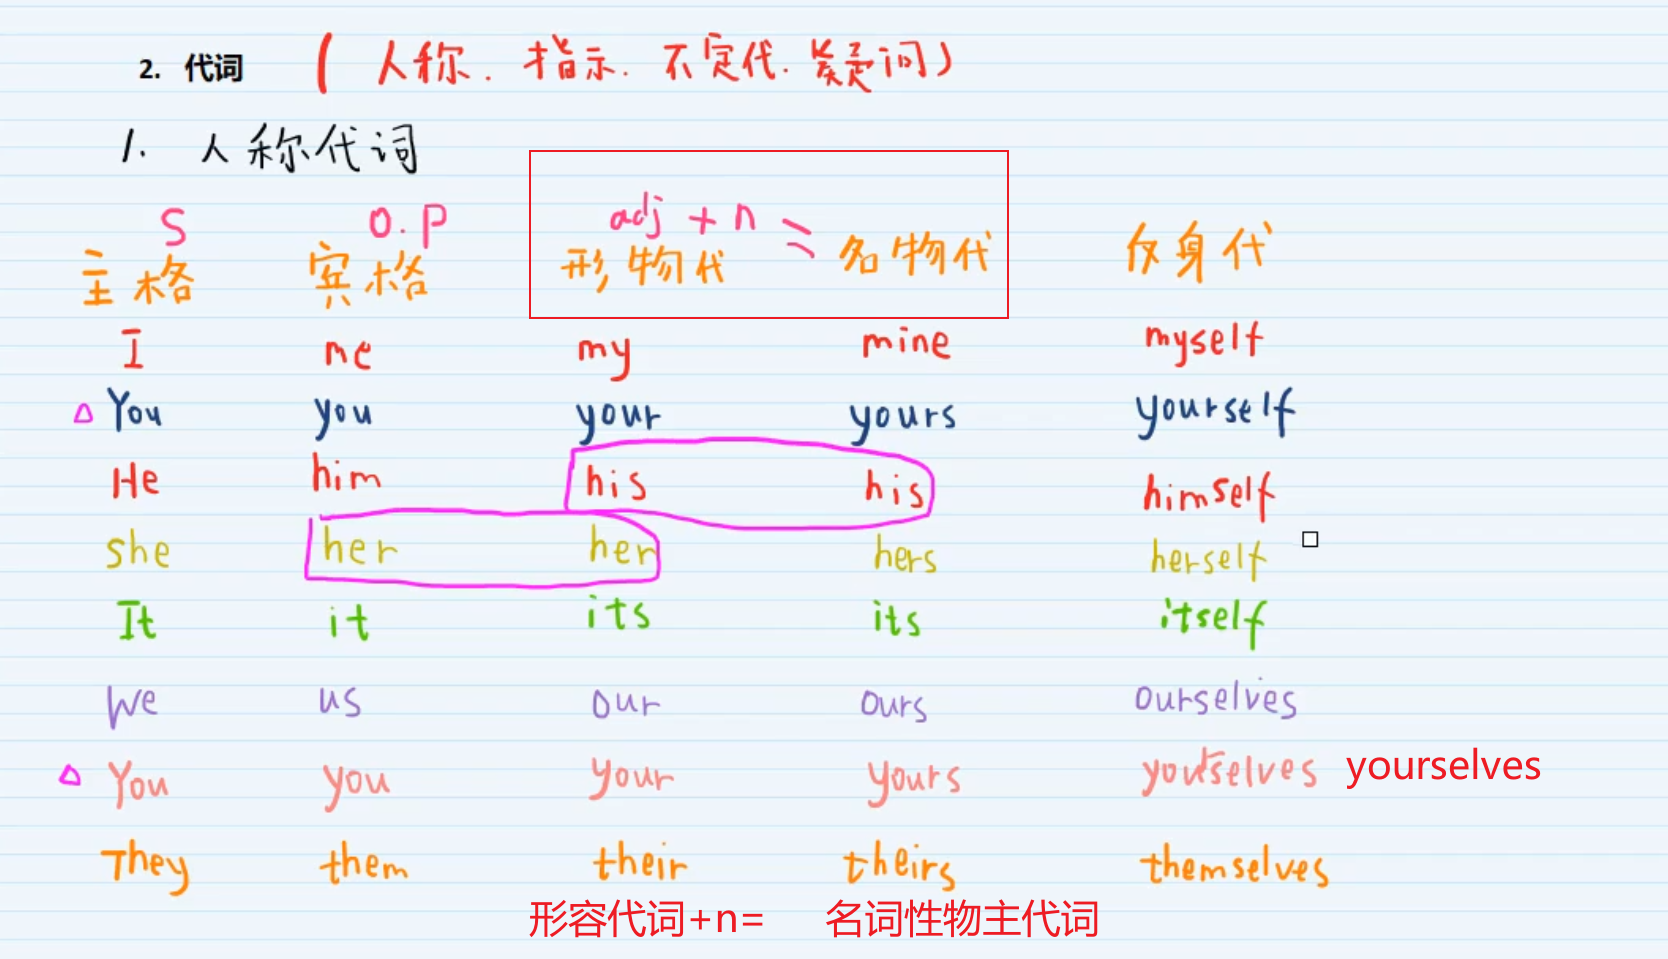 2. 代词 ( 人称. 指示. 不定代. 疑问)
1. 人称代词
S O.P adj + n =
主格 宾格 形物代 名物代 反身代
I me my mine myself
△ You you your yours yourself
He him his his himself
she her her hers herself
It it its its itself
We us our ours ourselves
△ You you your yours yourselves yourselves
They them their theirs themselves
形容代词+n= 名词性物主代词